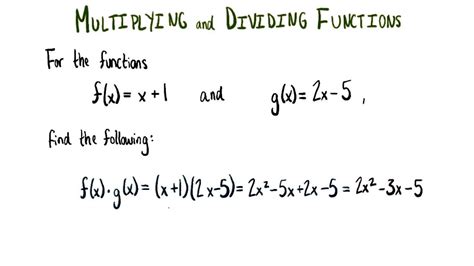 MULTIPLYING and DIVIDING FUNCTIONS
For the functions
f(x) = x + 1 and g(x) = 2x - 5 ,
find the following:
f(x) · g(x) = (x+1)(2x-5) = 2x² - 5x + 2x - 5 = 2x² - 3x - 5